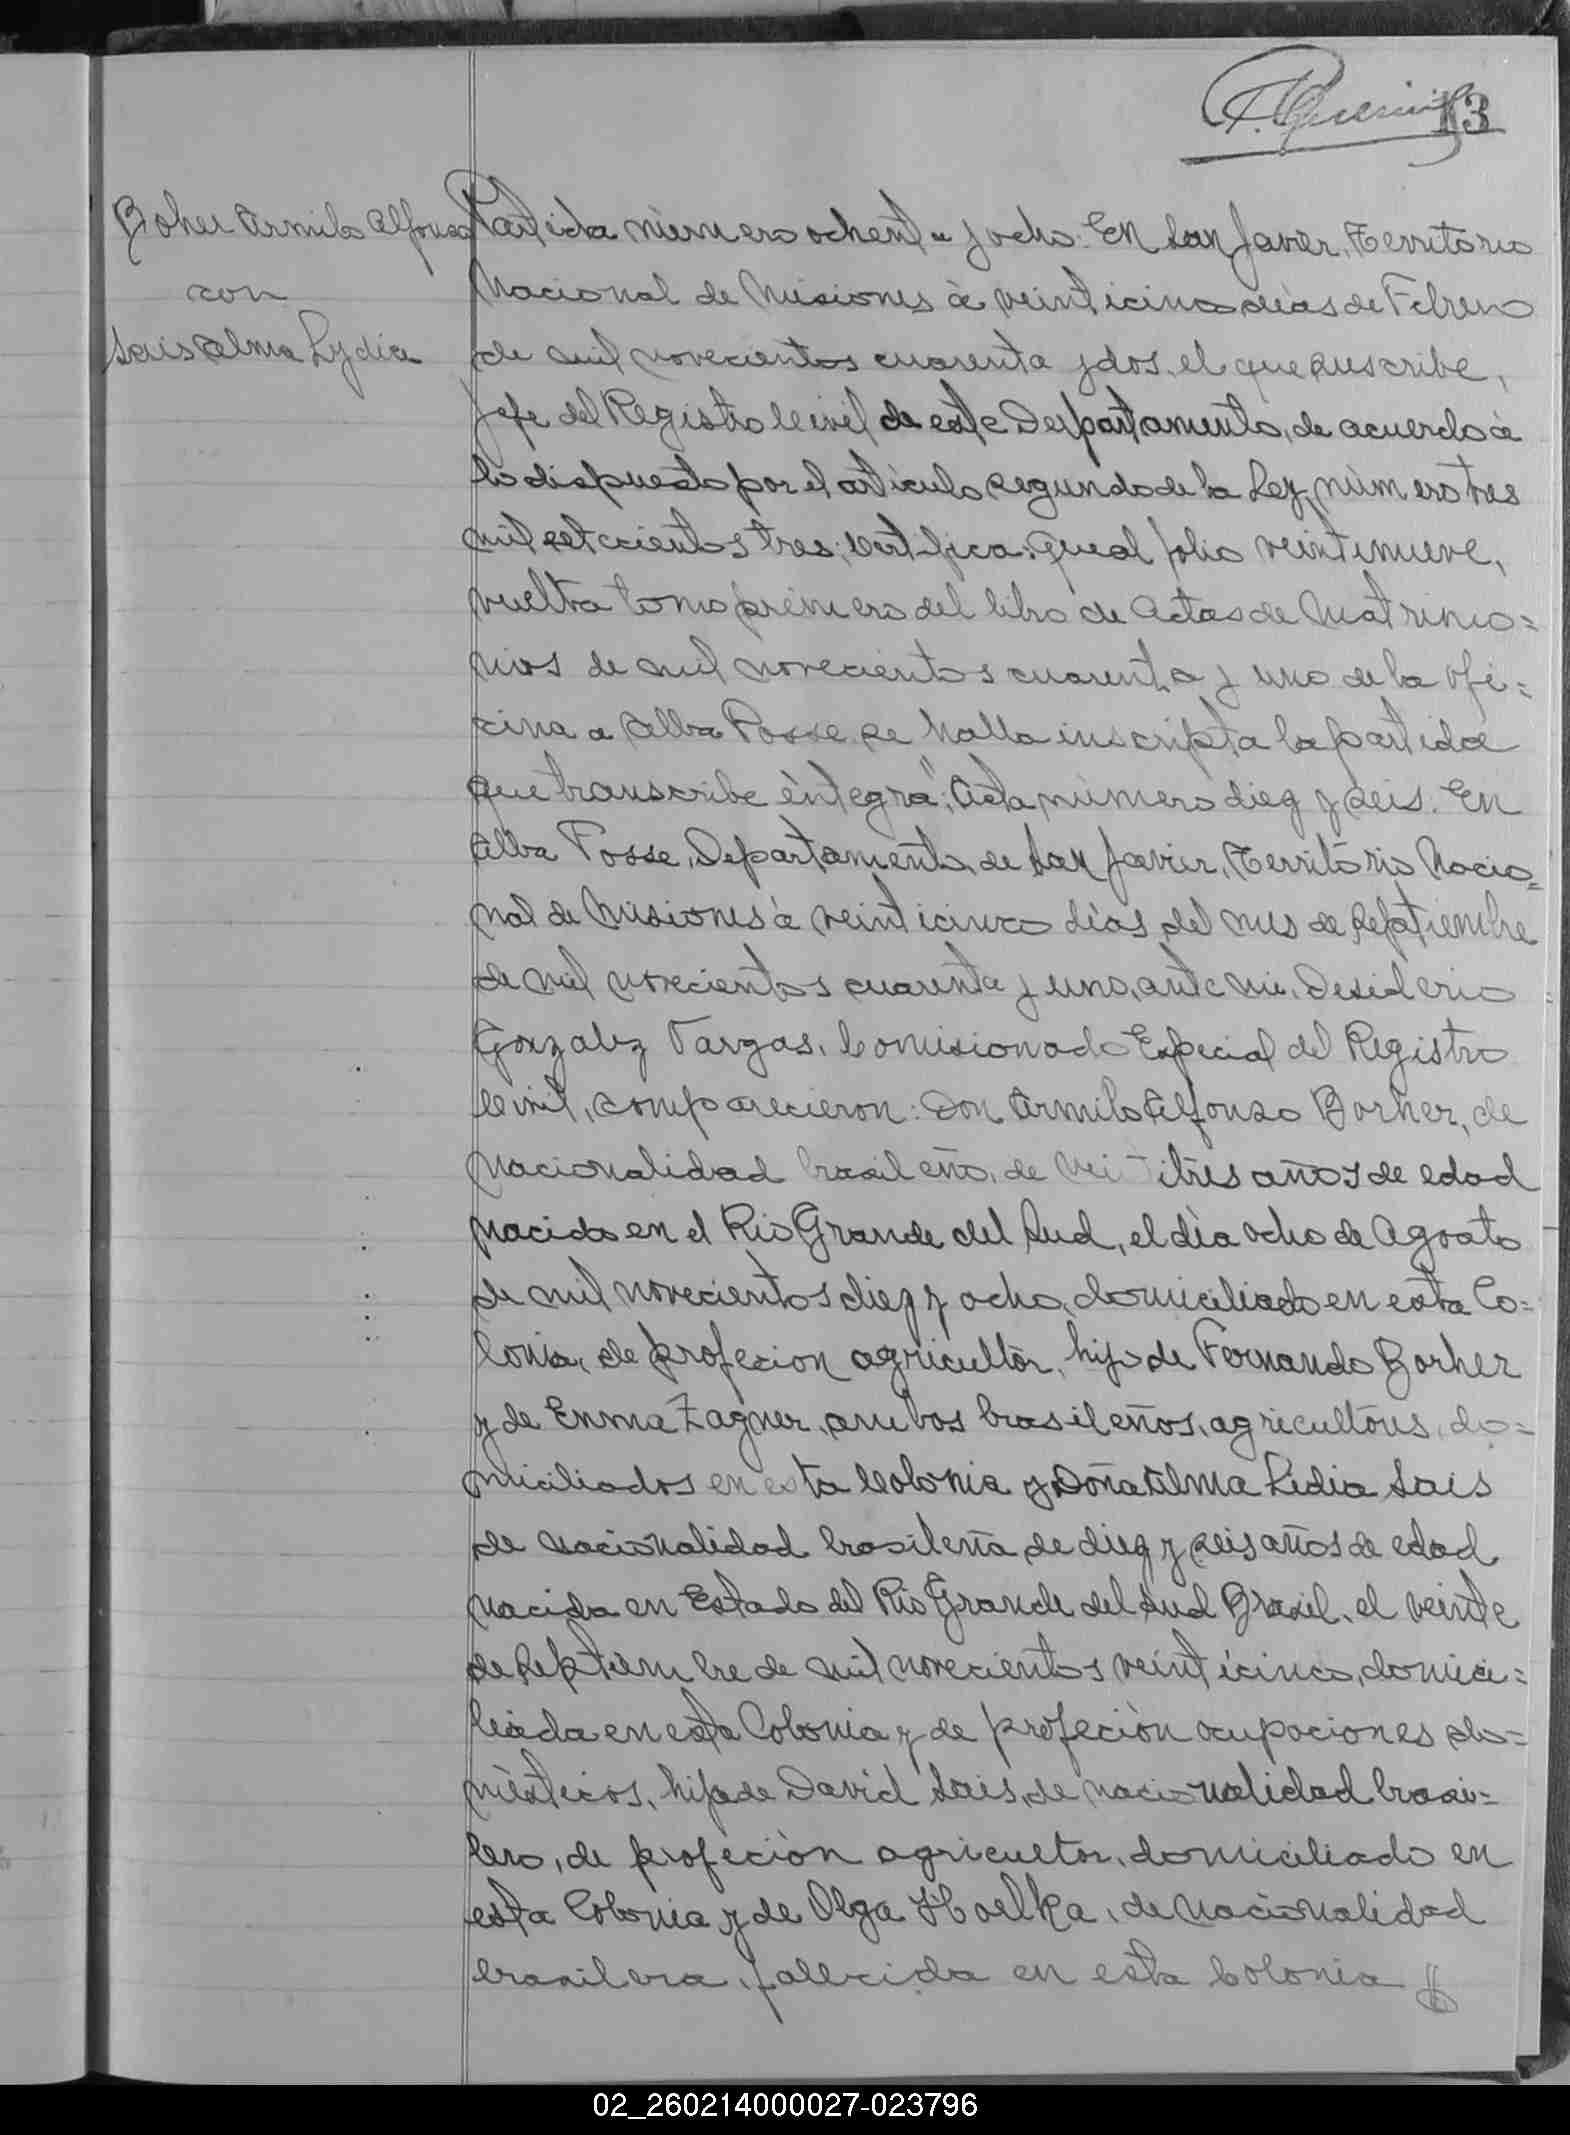 13
Boher Armilo Alfonso
con
Sais Alma Lydia
Partida número ochenta y ocho: En San Javier, Territorio
Nacional de Misiones à veinticinco dias de Febrero
de mil novecientos cuarenta y dos, el que suscribe,
Jefe del Registro Civil de este Departamento, de acuerdo à
lo dispuesto por el articulo segundo de la Ley, número tres
mil setecientos tres; Certifica: que al folio veintinueve,
vuelta tomo primero del libro de Actas de Matrimo=
nios de mil novecientos cuarenta y uno de la ofi=
cina a Alba Posse se halla inscripta la partida
que transcribe integra": Acta número diez y seis. En
Alba Posse, Departamento de San Javier, Territorio Nacio=
nal de Misiones à veinticinco dias del mes de Septiembre
de mil novecientos cuarenta y uno, ante mi, Desiderio
Gonzalez Vargas, Comisionado Especial del Registro
Civil, comparecieron: Don Armilo Alfonso Borher, de
nacionalidad brasileño, de itres años de edad
nacido en el Rio Grande del Sud, el dia ocho de Agosto
de mil novecientos diez y ocho, domiciliado en esta Co=
lonia, de profecion agricultor, hijo de Fernando Borher
y de Emma Zagner, ambos brasileños, agricultores, do=
miciliados en esta Colonia y Doña Alma Lidia Sais
de nacionalidad brasileña de diez y seis años de edad
nacida en Estado del Rio Grande del Sud Brasil, el veinte
de Septiembre de mil novecientos veinticinco, domici=
liada en esta Colonia y de profeciòn ocupaciones do=
mèsticos, hija de David Sais, de nacionalidad brasi=
lero, de profeciòn agricultor, domiciliado en
esta Colonia y de Olga Hoelka, de nacionalidad
brasilera, fallecida en esta Colonia
02_260214000027-023796